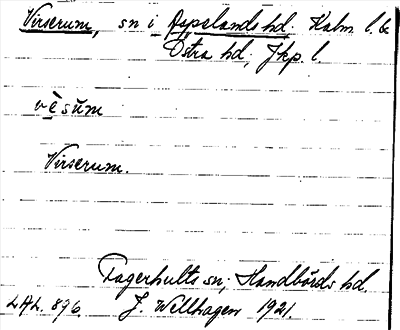 Virserum, sn i Aspelands hd. Kalm. l. &
Östra hd, Jkp. l.
vè̀sŭm
Virserum.
Fagerhults sn, Handbörds hd.
LAL. 896. J. Wellhagen 1921.